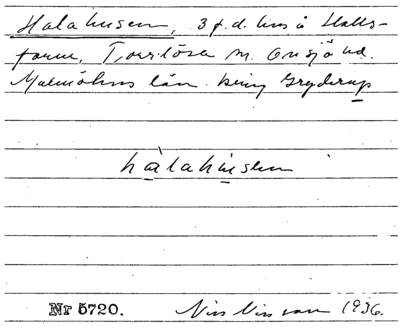 Halahusen, 3 f.d. hus å Halls-
farm, Torrlösa sn. Onsjö hd.
Malmöhus län. kring Gryderup
hàlahúsen
Nr 5720. Nils Nilsson 1936.